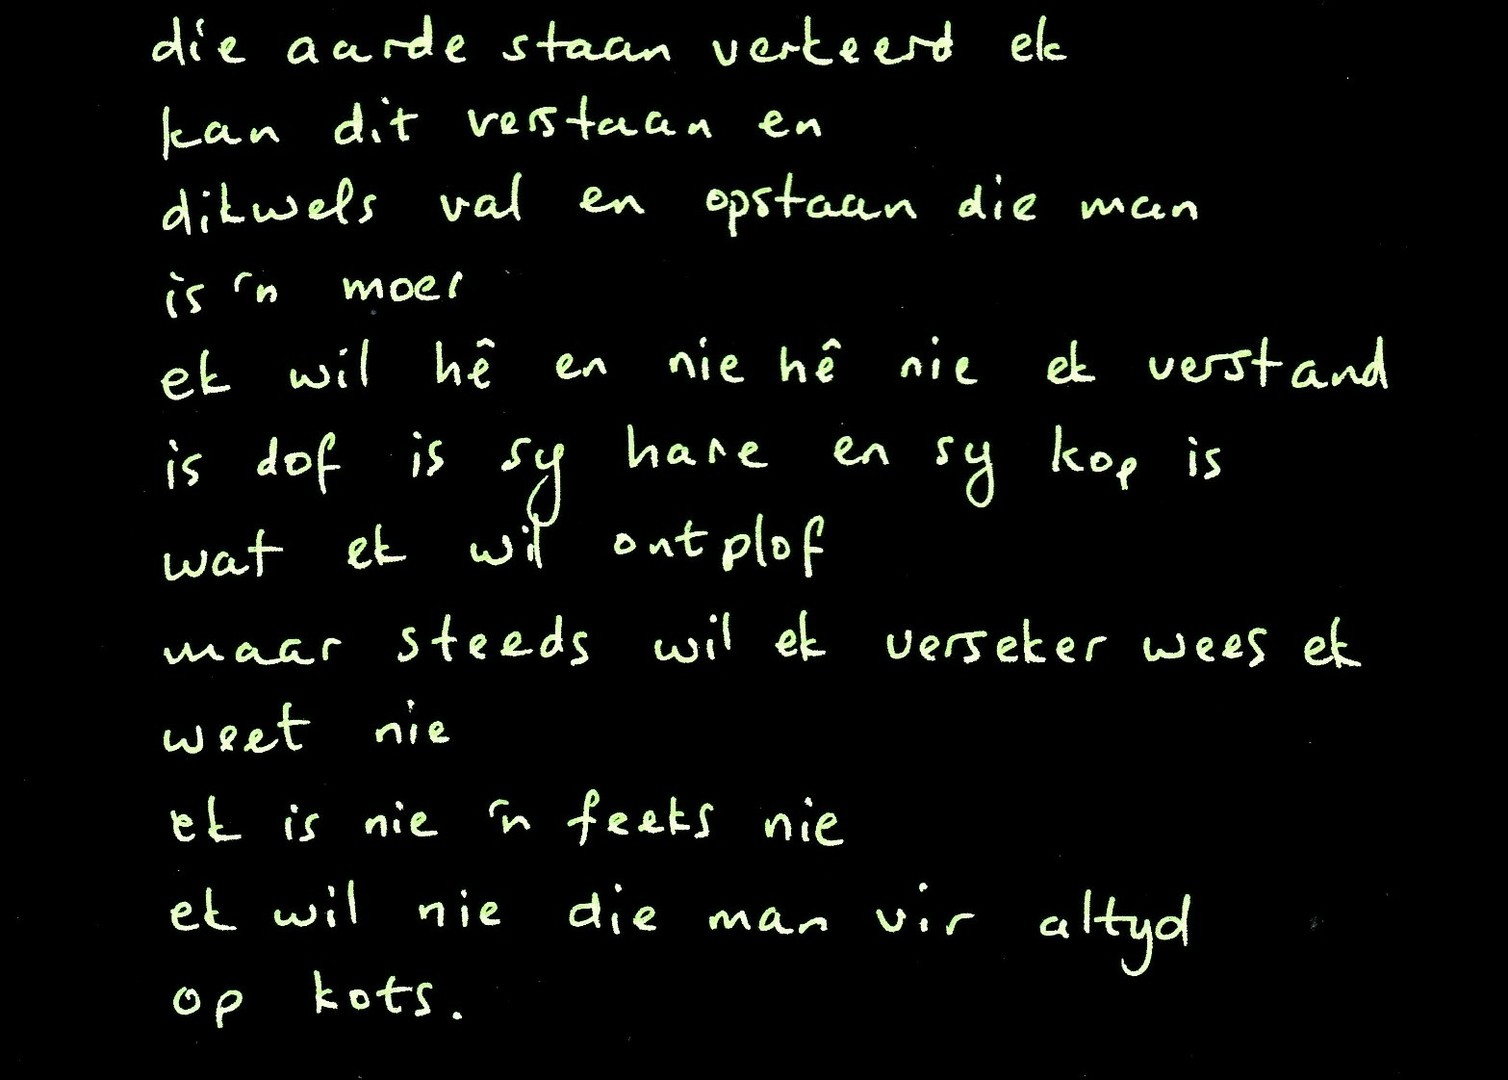 die aarde staan verkeerd ek
kan dit verstaan en
dikwels val en opstaan die man
is 'n moer
ek wil hê en nie hê nie ek verstand
is dof is sy hare en sy kop is
wat ek wil ontplof
maar steeds wil ek verseker wees ek
weet nie
ek is nie 'n feeks nie
ek wil nie die man vir altyd
op kots.